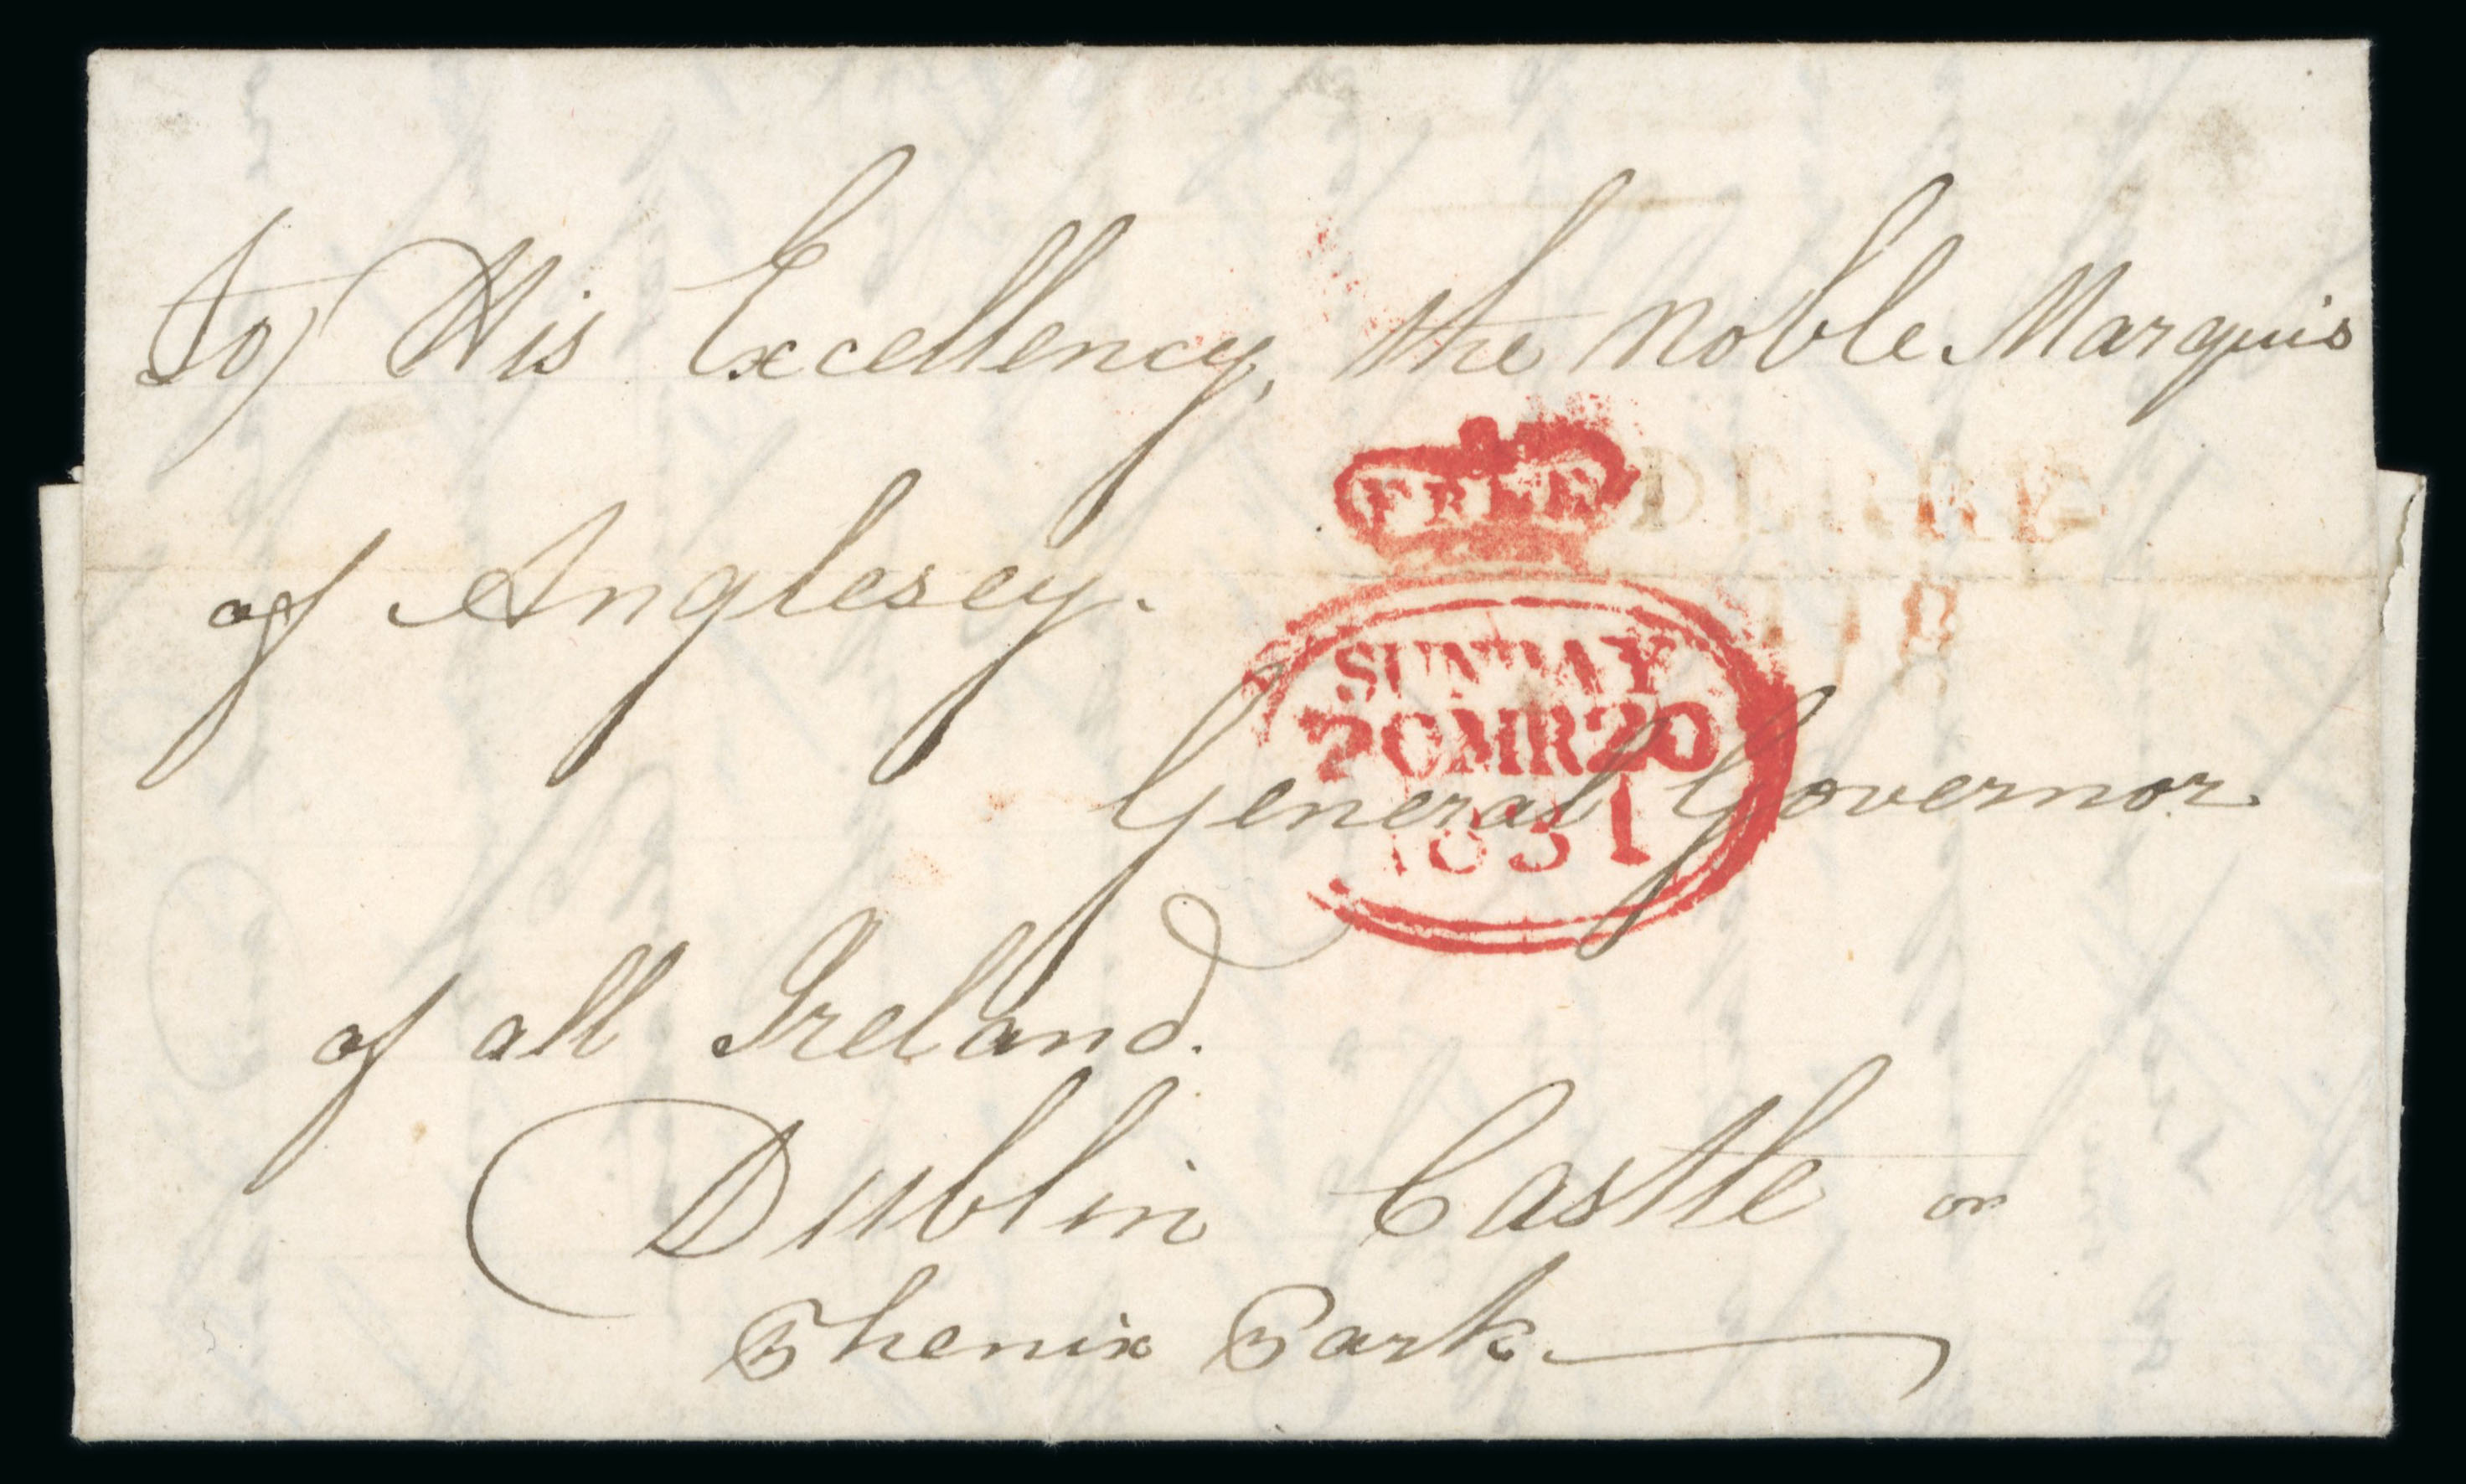 To/ His Excellency, the Noble Marquis
of Anglesey.
FREE
DERRY
118
SUNDAY
20MR20
1831
General Governor
of all Ireland.
Dublin Castle or
Phenix Park.